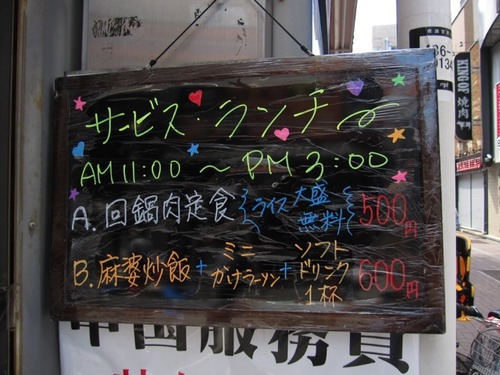 サービス・ランチ
AM 11:00 ～ PM 3:00
A. 回鍋肉定食 ライス大盛無料 500円
B. 麻婆炒飯 + ミニがけラーメン + ソフトドリンク1杯 600円
中国服務員
KING OF 焼肉